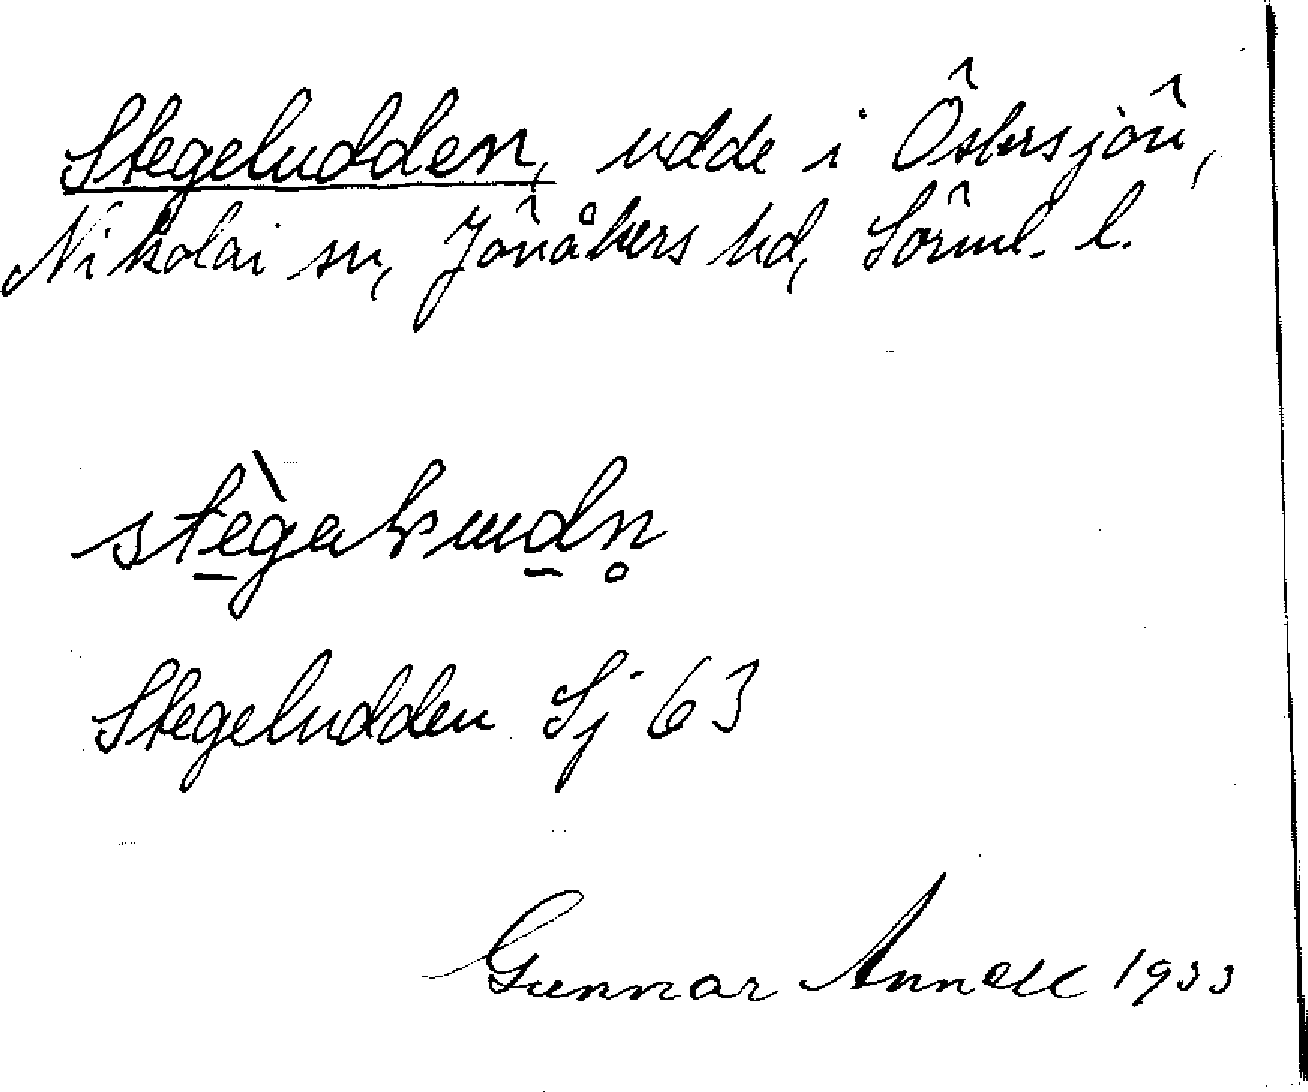 Stegeludden, udde i Östersjön,
Nikolai sn, Jönåkers hd, Sörml. l.
Stegeludden Sj 63
Gunnar Annell 1933